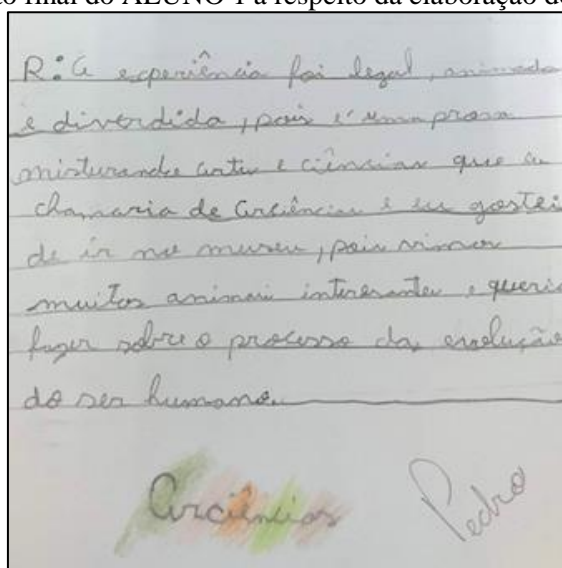 to final do ALUNO 1 a respeito da elaboração d
R: A experiência foi legal, animada
e diverdida, pois é uma prova
misturando artes e ciências que eu
chamaria de Arciências e eu gostei
de ir no museu, pois vimos
muitos animais interesantes e queria
fazer sobre o processo da evolução
do ser humano.
Arciências
Pedro